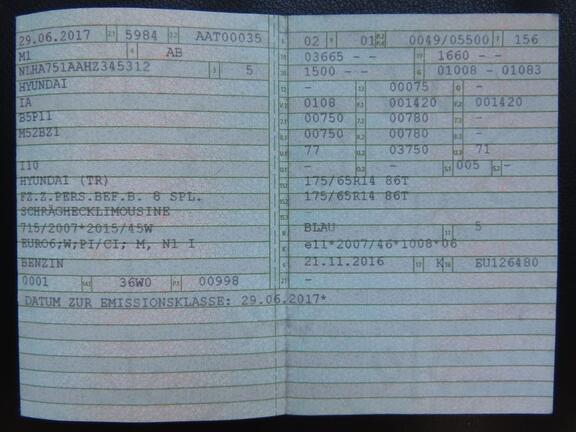 29.06.2017 5984 AAT00035
M1 AB
NLHA751AAHZ345312 5
HYUNDAI
IA
B5P11
M52BZ1
-
I10
HYUNDAI (TR)
FZ.Z.PERS.BEF.B. 8 SPL.
SCHRÄGHECKLIMOUSINE
715/2007*2015/45W
EURO6;W;PI/CI; M, N1 I
BENZIN
0001 36W0 00998
DATUM ZUR EMISSIONSKLASSE: 29.06.2017*
02 01 0049/05500 156
03665 - - 1660 - -
1500 - - 01008 - 01083
- 00075 -
0108 001420 001420
00750 00780 -
00750 00780 -
77 03750 71
- - 005 -
175/65R14 86T
175/65R14 86T
-
BLAU 5
e11*2007/46*1008*06
21.11.2016 K EU126480
-